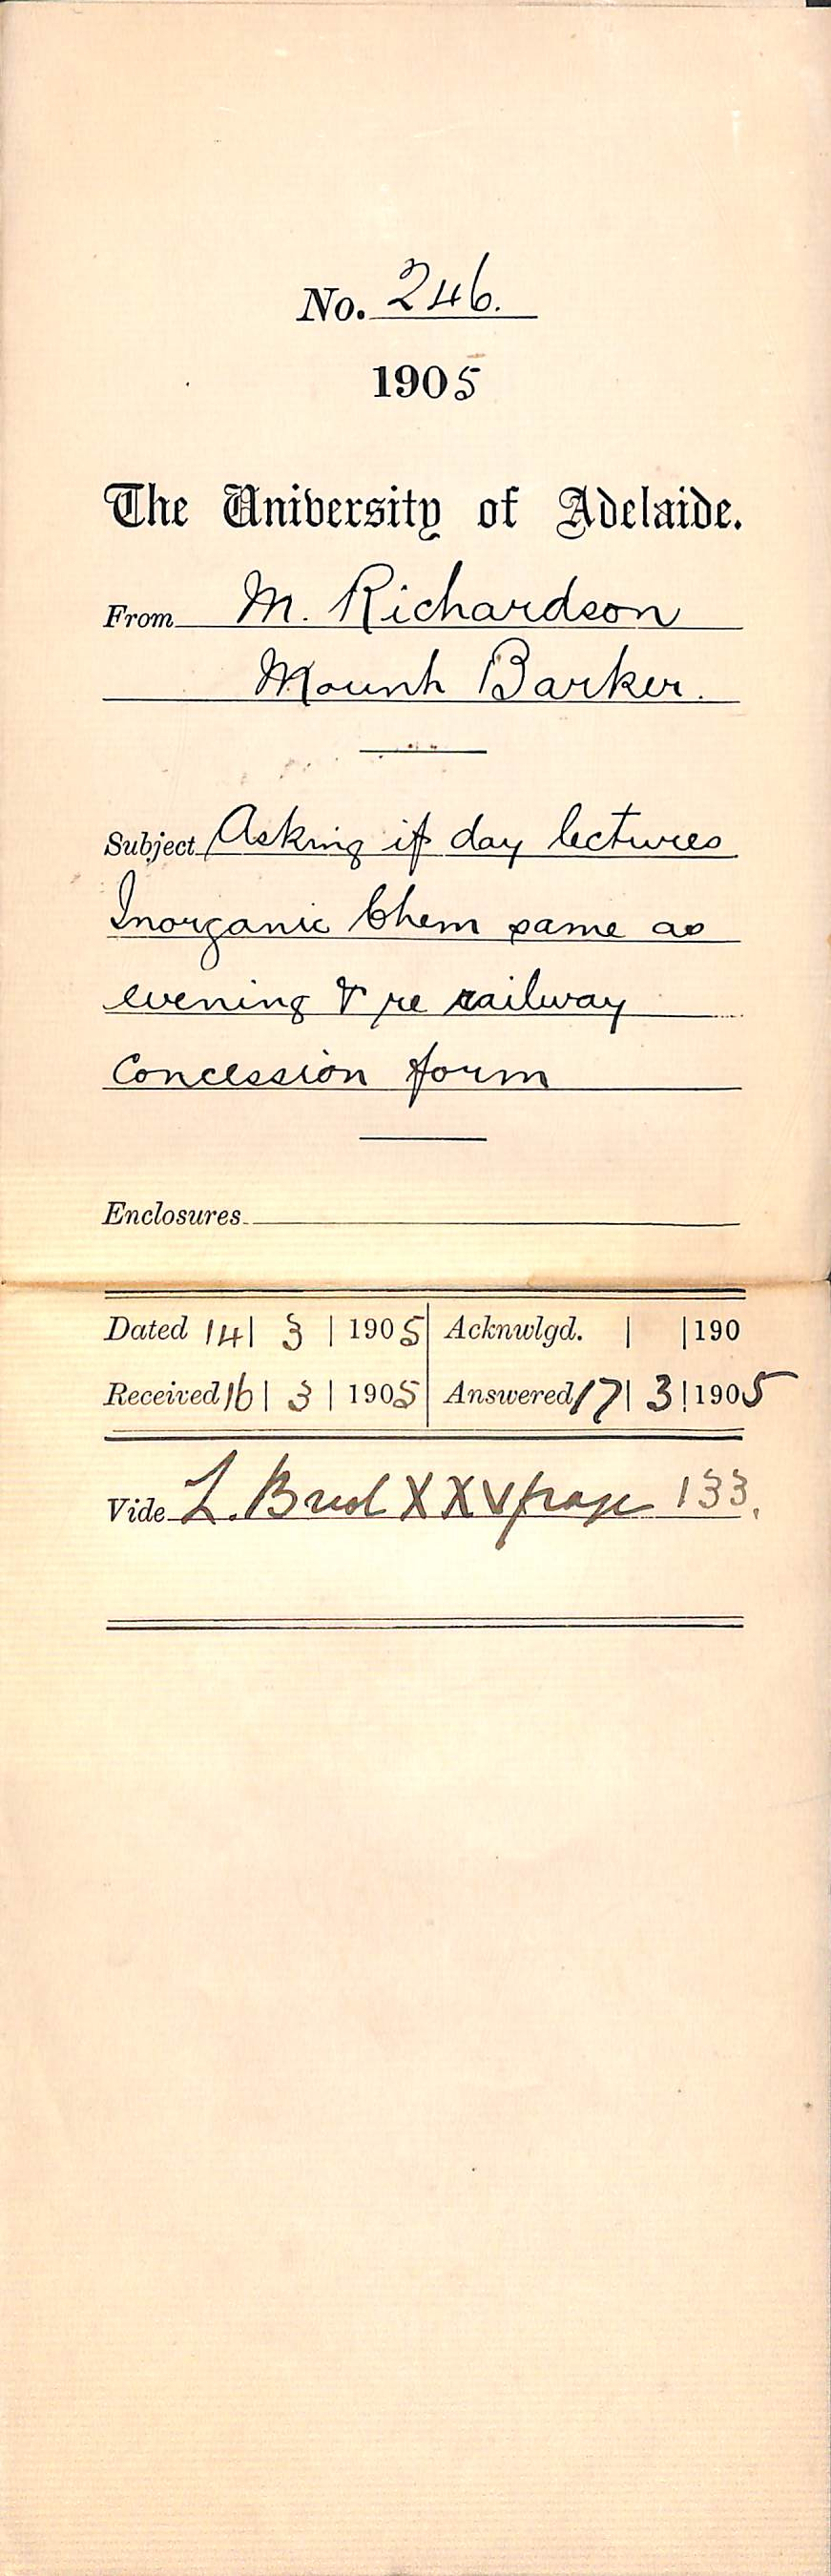 No. 246.
1905
The University of Adelaide.
From M. Richardson
Mount Barker.
Subject Asking if day lectures
Inorganic Chem same as
evening & re railway
concession form
Enclosures
Dated 14 | 3 | 1905 Acknwlgd. | | 190
Received 16 | 3 | 1905 Answered 17 | 3 | 1905
Vide L. XXV page 133.